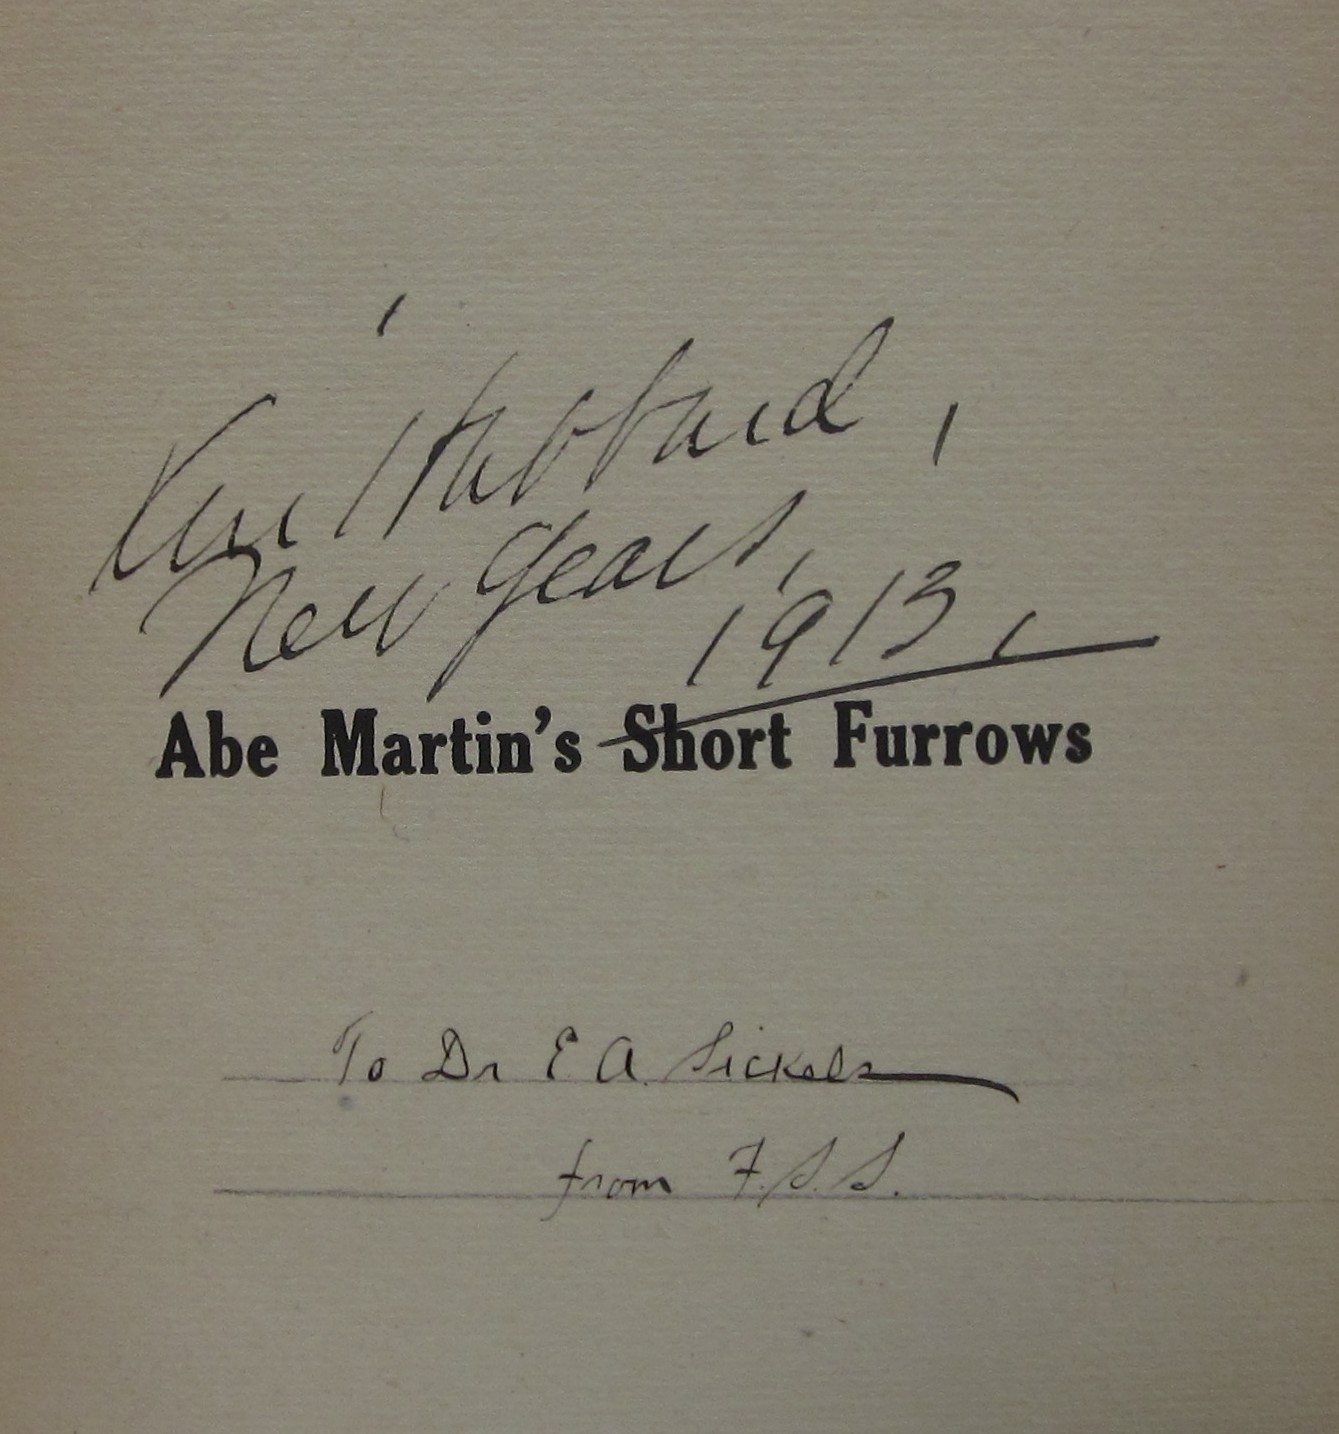 Kin Hubbard,
New Years,
1913.
Abe Martin's Short Furrows
To Dr E A. Sickels
from F.S.S.